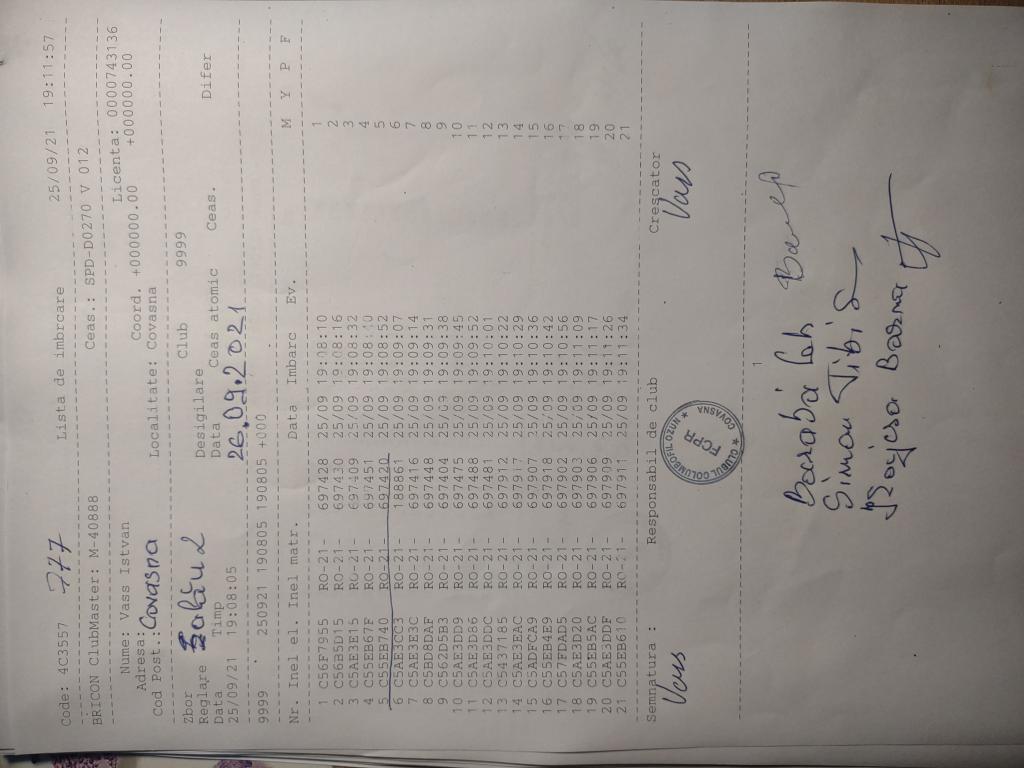 Code: 4C3557 777 Lista de imbrcare 25/09/21 19:11:57
BRICON ClubMaster: M-40888 Ceas.: SPD-D0270 V 012
Nume: Vass Istvan Licenta: 0000743136
Adresa: Coord. +000000.00 +000000.00
Cod Post.: Covasna Localitate: Covasna
Zbor 2 Club 9999
Reglare Desigilare
Data Timp Data Ceas atomic Ceas. Difer
25/09/21 19:08:05 26.09.2021
9999 250921 190805 190805 +000
Nr. Inel el. Inel matr. Data Imbarc Ev. M Y P F
1 C56F7955 RO-21- 697428 25/09 19:08:10 1
2 C56B5D15 RO-21- 697430 25/09 19:08:16 2
3 C5AE3E15 RO-21- 697409 25/09 19:08:32 3
4 C55EB67F RO-21- 697451 25/09 19:08:40 4
5 C55EB740 RO-21- 697420 25/09 19:08:52 5
6 C5AE3CC3 RO-21- 188861 25/09 19:09:07 6
7 C5AE3E3C RO-21- 697416 25/09 19:09:14 7
8 C5B08DAF RO-21- 697448 25/09 19:09:31 8
9 C562D5B3 RO-21- 697404 25/09 19:09:38 9
10 C5AE3DD9 RO-21- 697475 25/09 19:09:45 10
11 C5AE3D86 RO-21- 697488 25/09 19:09:52 11
12 C5AE3DDC RO-21- 697481 25/09 19:10:01 12
13 C5437185 RO-21- 697912 25/09 19:10:22 13
14 C5AE3EAC RO-21- 697917 25/09 19:10:29 14
15 C5ADFCA9 RO-21- 697907 25/09 19:10:36 15
16 C55EB4E9 RO-21- 697918 25/09 19:10:42 16
17 C57FDAD5 RO-21- 697902 25/09 19:10:56 17
18 C5AE3D20 RO-21- 697903 25/09 19:11:09 18
19 C55EB3AC RO-21- 697906 25/09 19:11:17 19
20 C5AE3DDF RO-21- 697909 25/09 19:11:26 20
21 C55EB610 RO-21- 697911 25/09 19:11:34 21
Semnatura : Responsabil de club Crescator
Vass Vass
FCPR
COVASNA
1
Simon Tibi